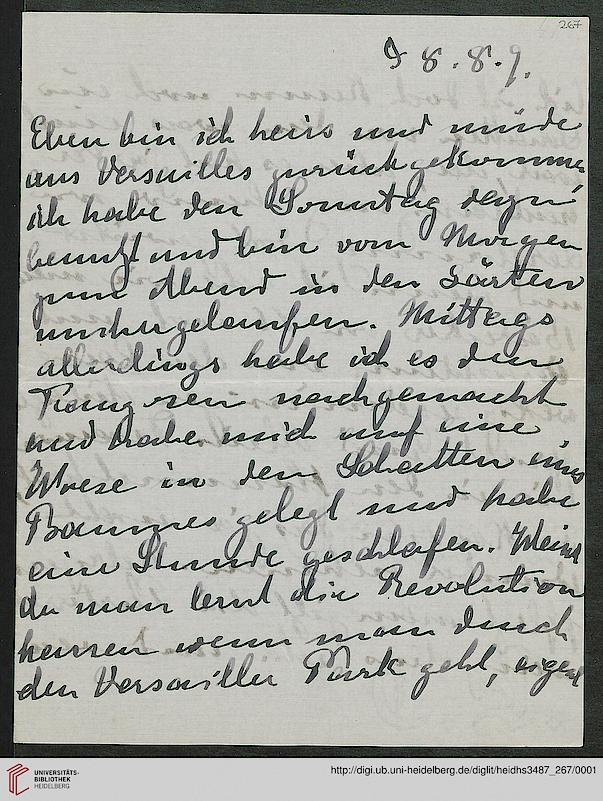 267
8. 8. 9.
Eben bin ich heiss und müde
aus Versailles zurückgekommen
ich habe den Sonntag dazu
benutzt und bin vom Morgen
zum Abend in den Gärten
umhergelaufen. Mittags
allerdings habe ich es den
Franzosen nachgemacht
und habe mich auf eine
Wiese in den Schatten eines
Baumes gelegt und habe
eine Stunde geschlafen. Weisst
du man lernt die Revolution
hassen wenn man durch
den Versailler Park geht,
UNIVERSITÄTS-
BIBLIOTHEK
HEIDELBERG
http://digi.ub.uni-heidelberg.de/diglit/heidhs3487_267/0001